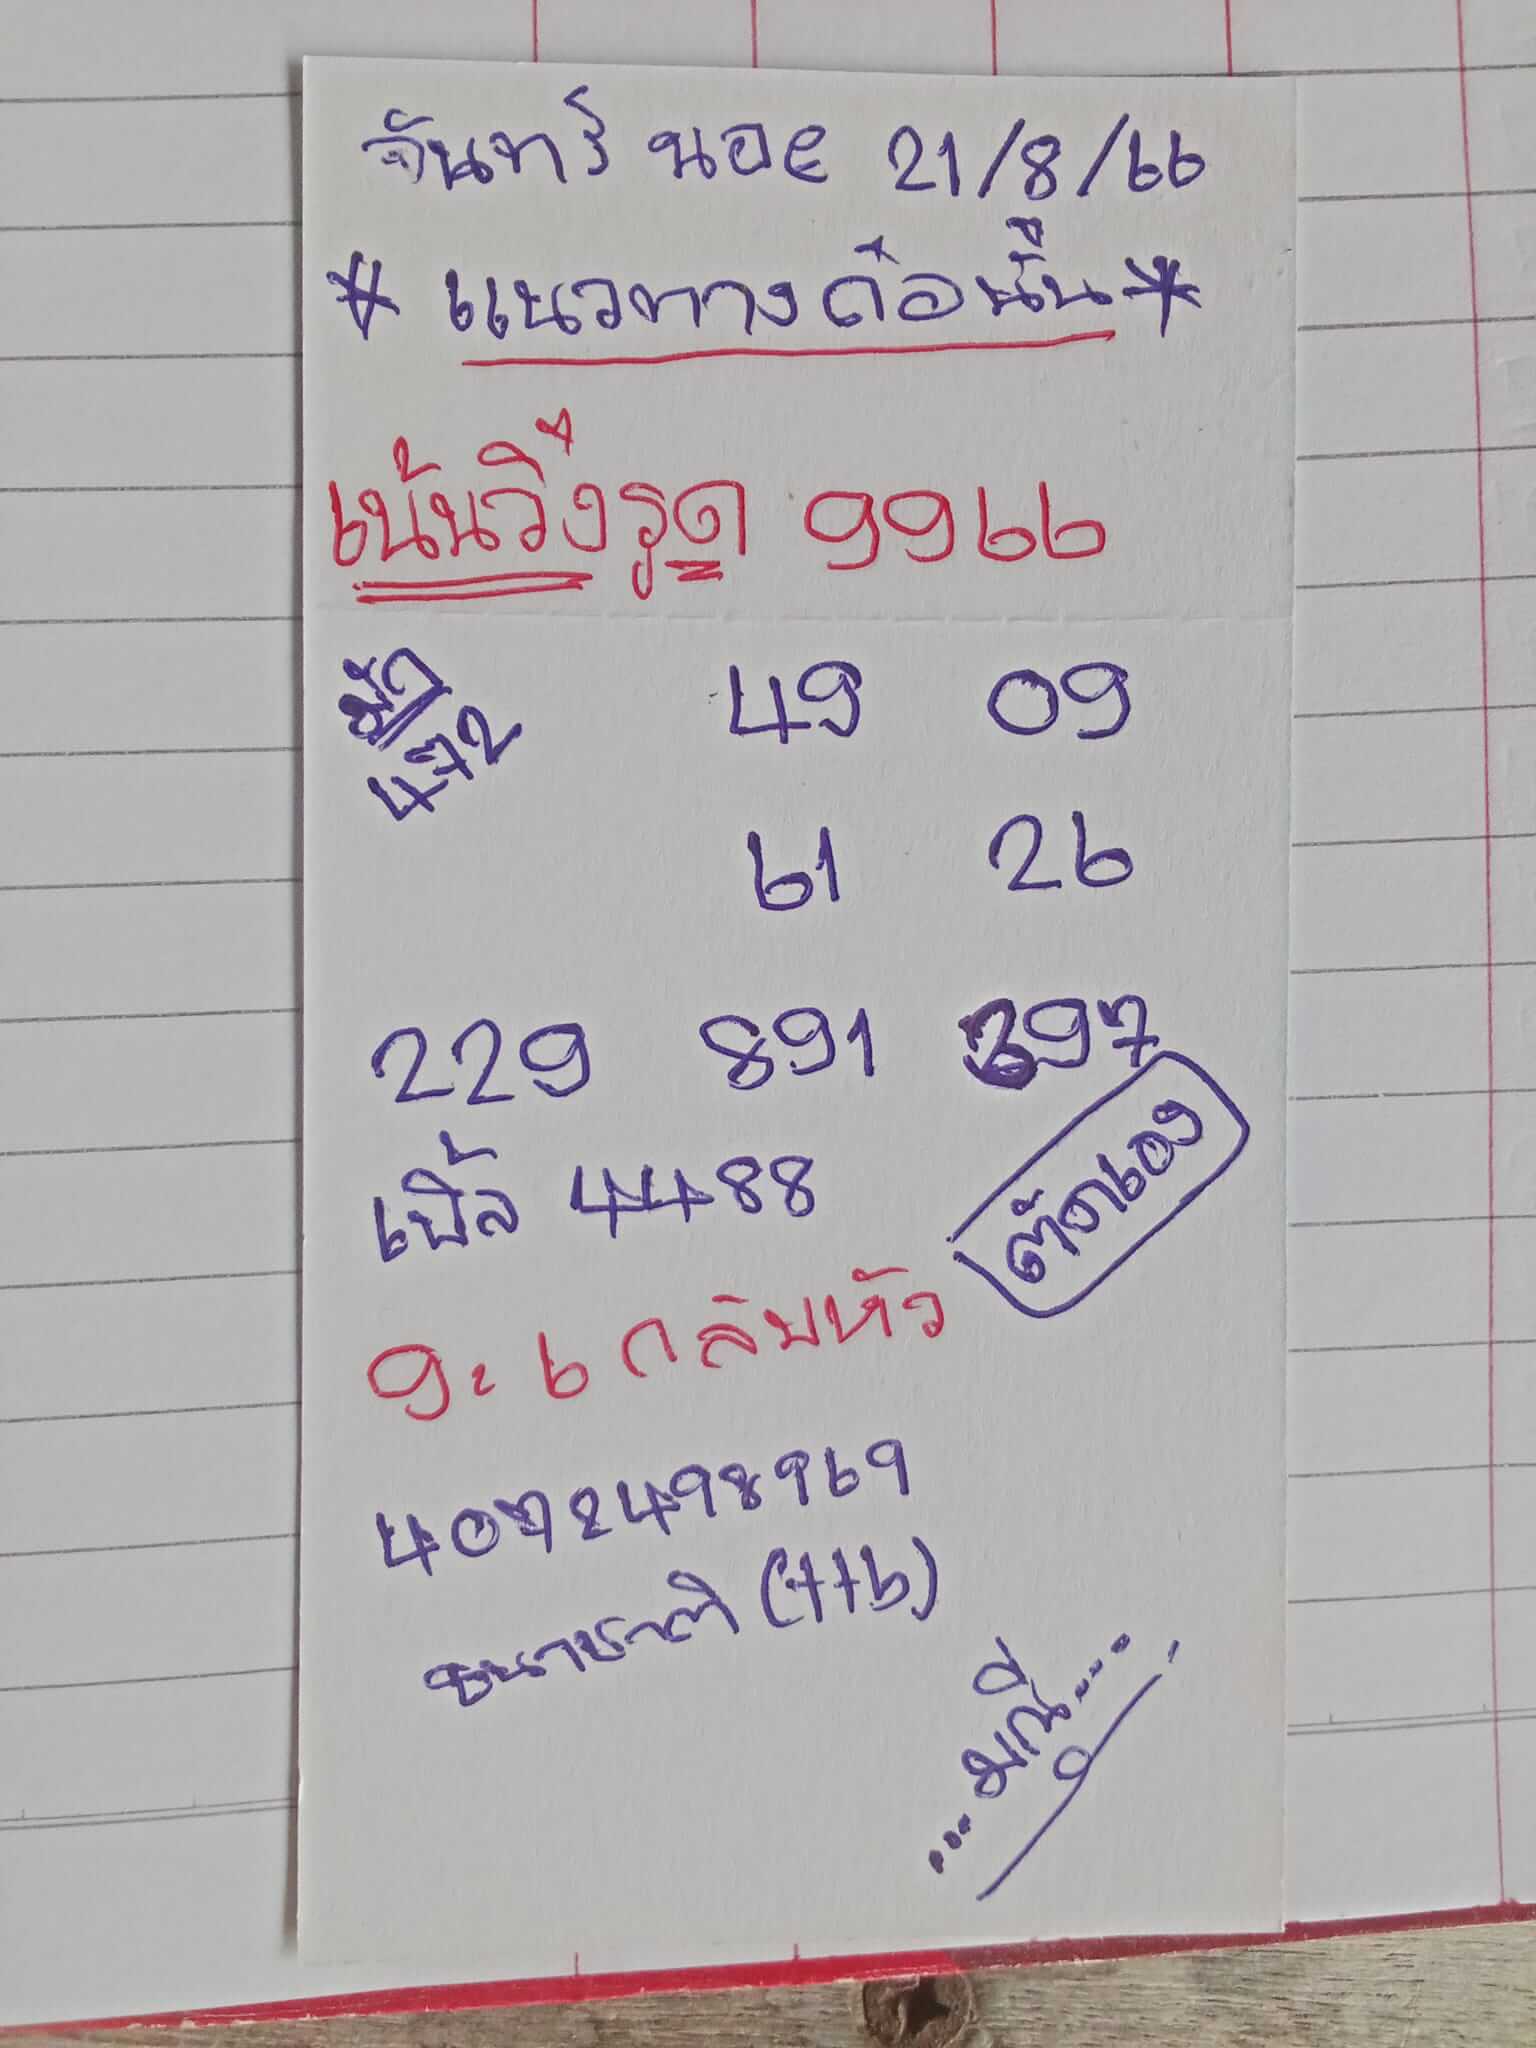 จันทร์ นอย 21/8/66
* แนวทางถือนั้น *
เน้นวิ่งรูด 9966
49 09
472
61 26
229 891 397
เบิ้ล 4488
ตัดเอง
9. 6 กลับหัว
4072498969
ธนาชาติ (ttb)
...มณี...